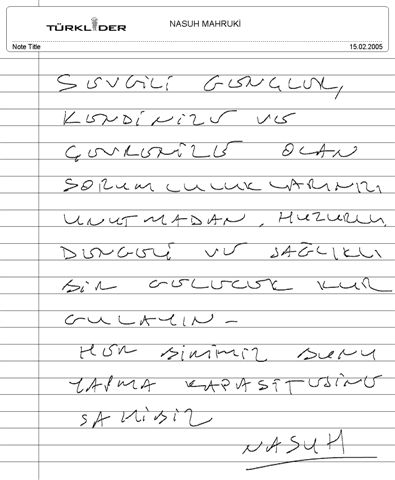 TÜRKLİDER
NASUH MAHRUKİ
Note Title 15.02.2005
SEVGİLİ GENÇLER,
KENDİNİZE VE
ÇEVRENİZE OLAN
SORUMLULUKLARINIZI
UNUTMADAN, HUZURLU,
DENGELİ VE SAĞLIKLI
BİR GELECEK KUR
GULAYIN –
HER BİRİMİZ BUNU
YAPMA KAPASİTESİNE
SAHİBİZ
NASUH